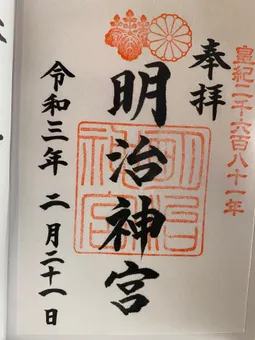 皇紀二千六百八十一年
奉拝
明治神宮
明治神宮
令和三年 二月二十一日